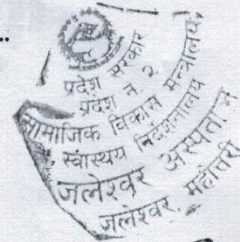 प्रदेश सरकार
प्रदेश न. २
सामाजिक विकास मन्त्रालय,
स्वास्थ्य निर्देशनालय
जलेश्वर अस्पताल
जलेश्वर, महोत्तरी